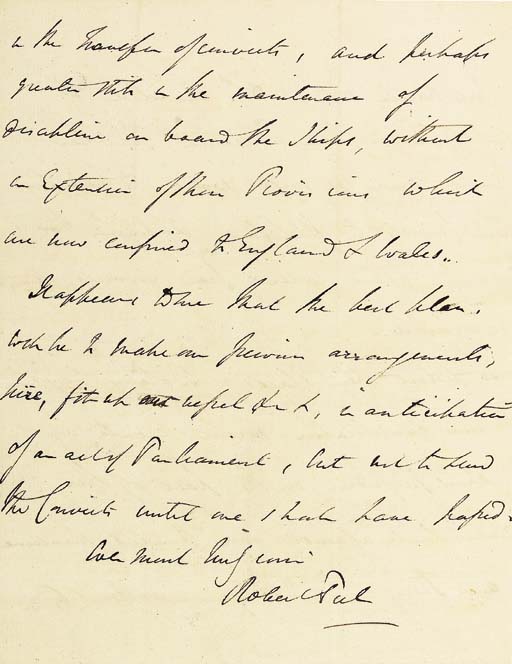 in the transfer of convicts, and perhaps
greater still in the maintenance of
discipline on board the Ships, without
an Extension of those Provisions which
are now confined to England & Wales..
It appears to me that the best plan.
wd be to make our previous arrangements,
hire, fit up vessel &c &c, in anticipation
of an act of Parliament, but not to send
the Convicts until one shall have passed.
Ever most truly yours
Robert Peel